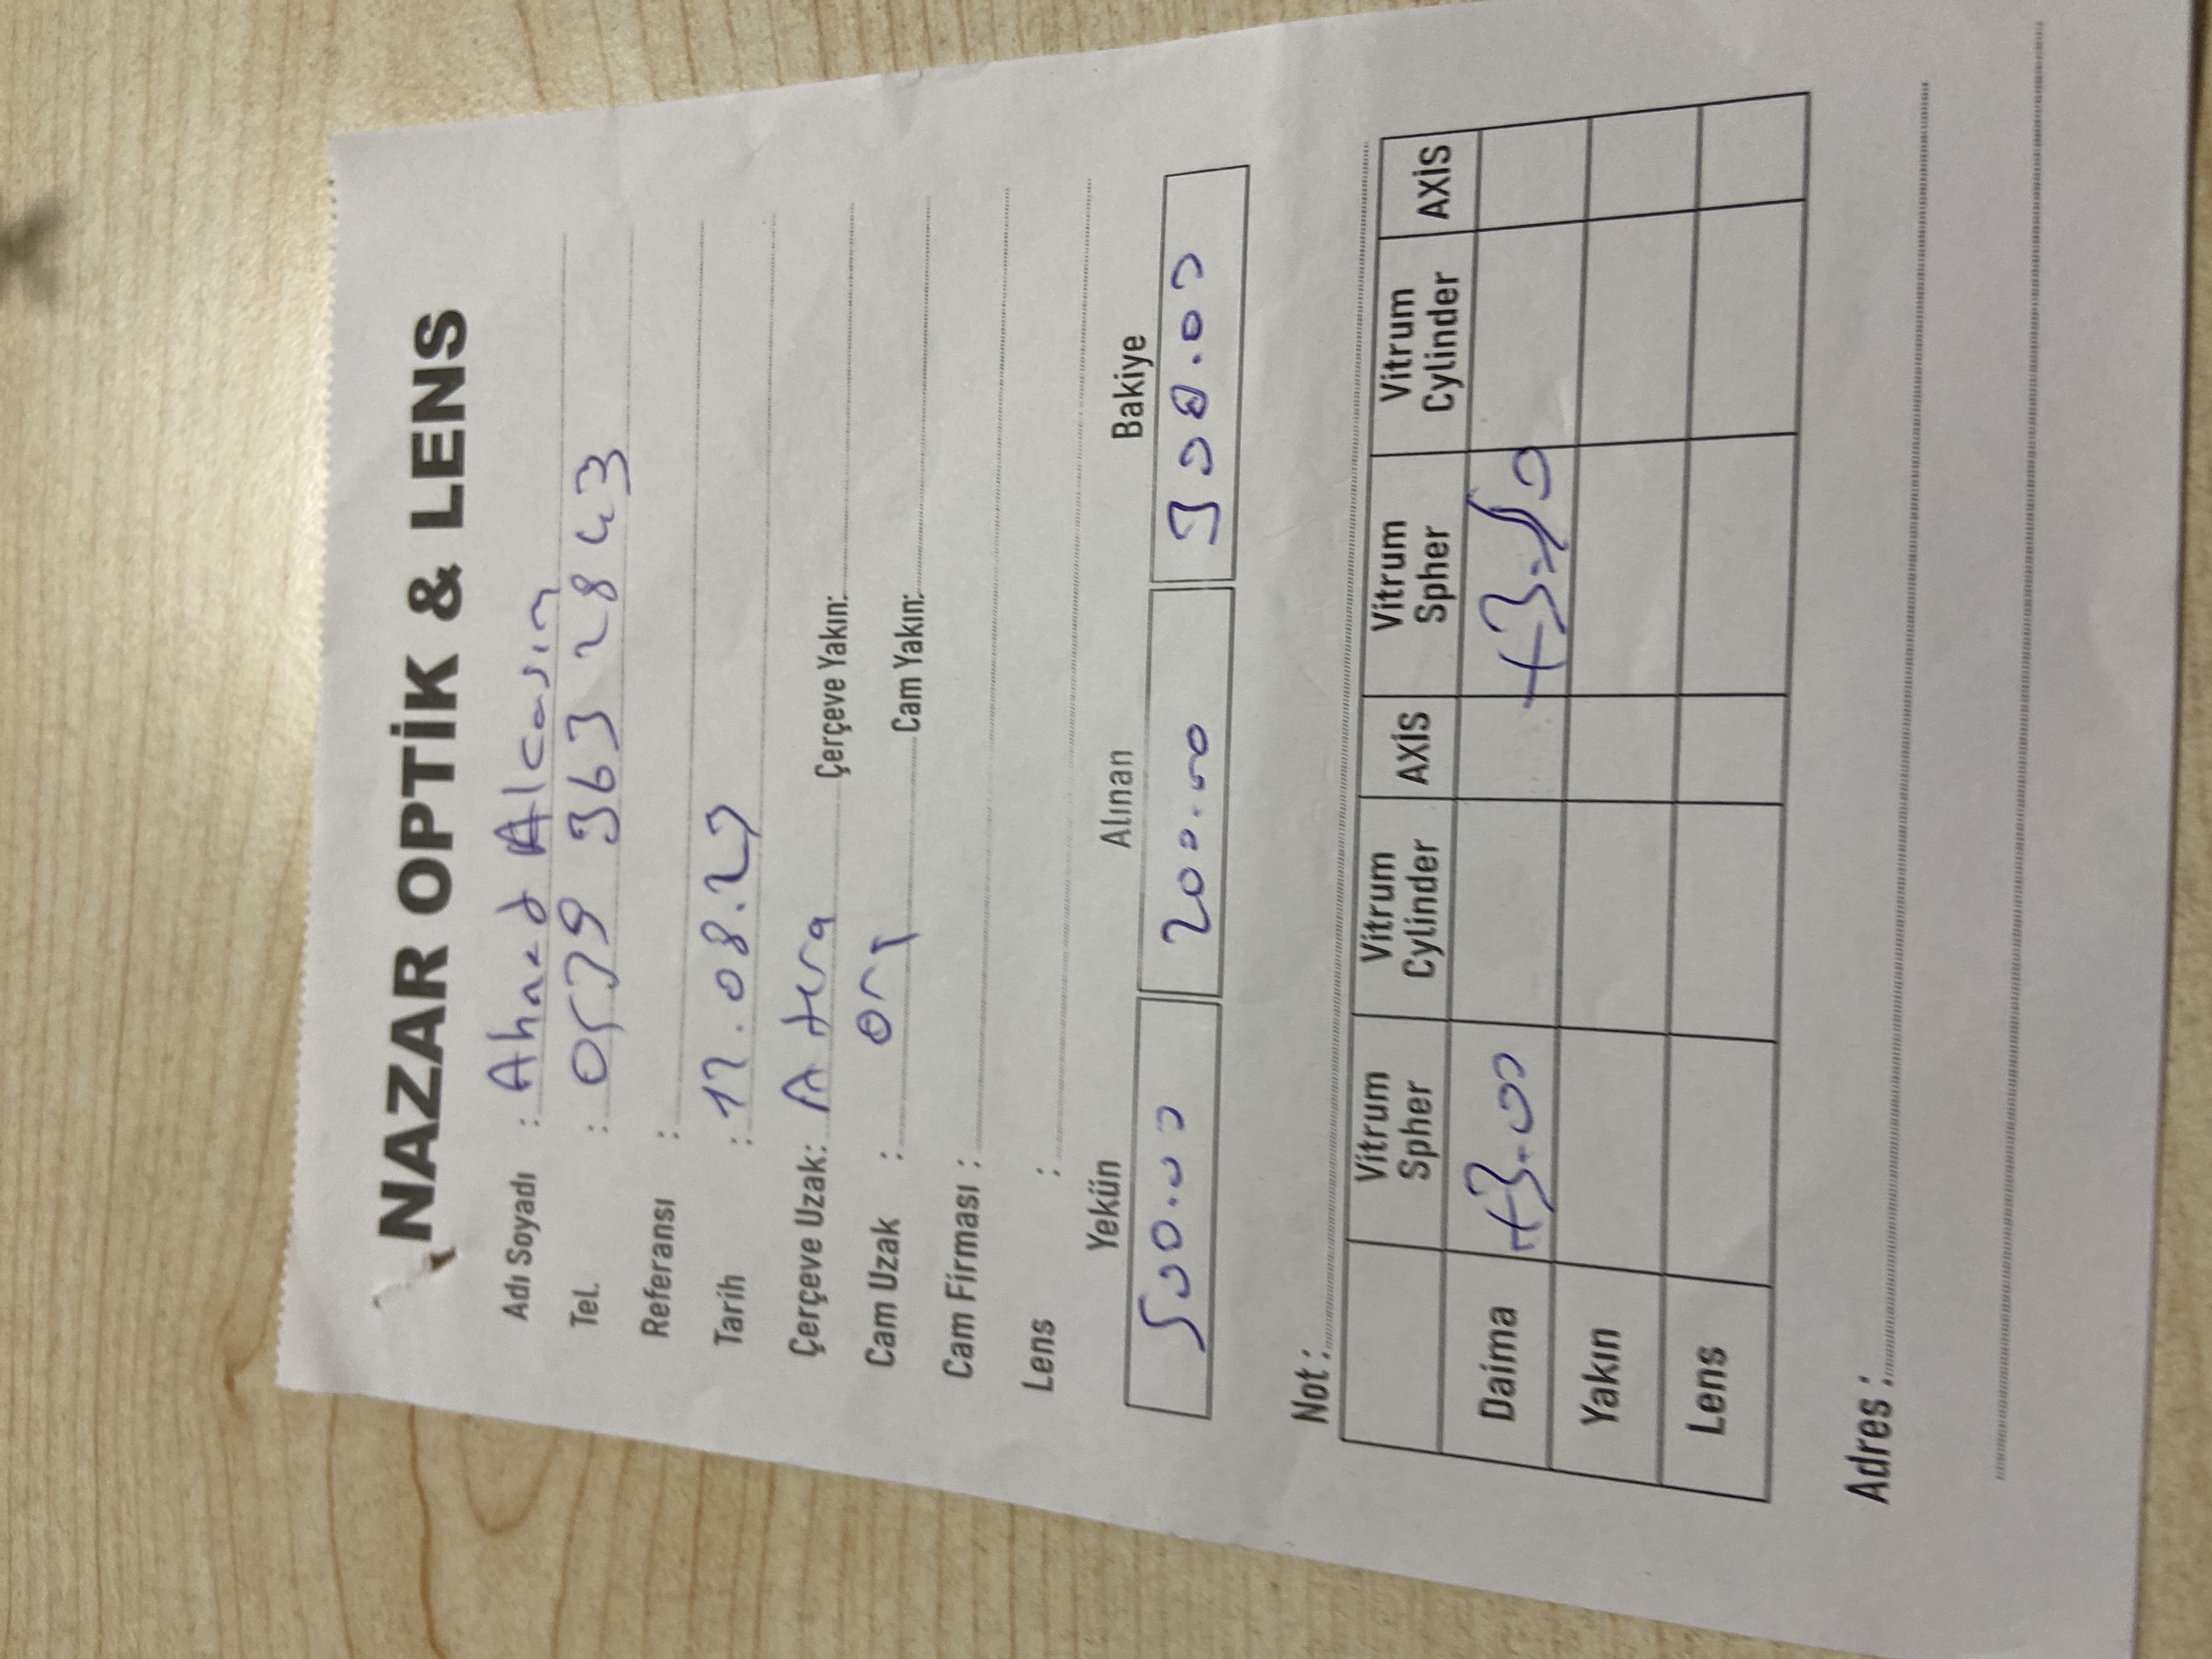 NAZAR OPTİK & LENS
Adı Soyadı : Ahmed Alcasım
Tel. : 0539 363 2843
Referansı :
Tarih : 12.08.23
Çerçeve Uzak: Atera Çerçeve Yakın:
Cam Uzak : Cam Yakın:
Cam Firması :
Lens :
Yekün Alınan Bakiye
500.00 200.00 300.00
Not :
Vitrum Spher Vitrum Cylinder AXİS Vitrum Spher Vitrum Cylinder AXİS
Daima +3.00 +3.50
Yakın
Lens
Adres :